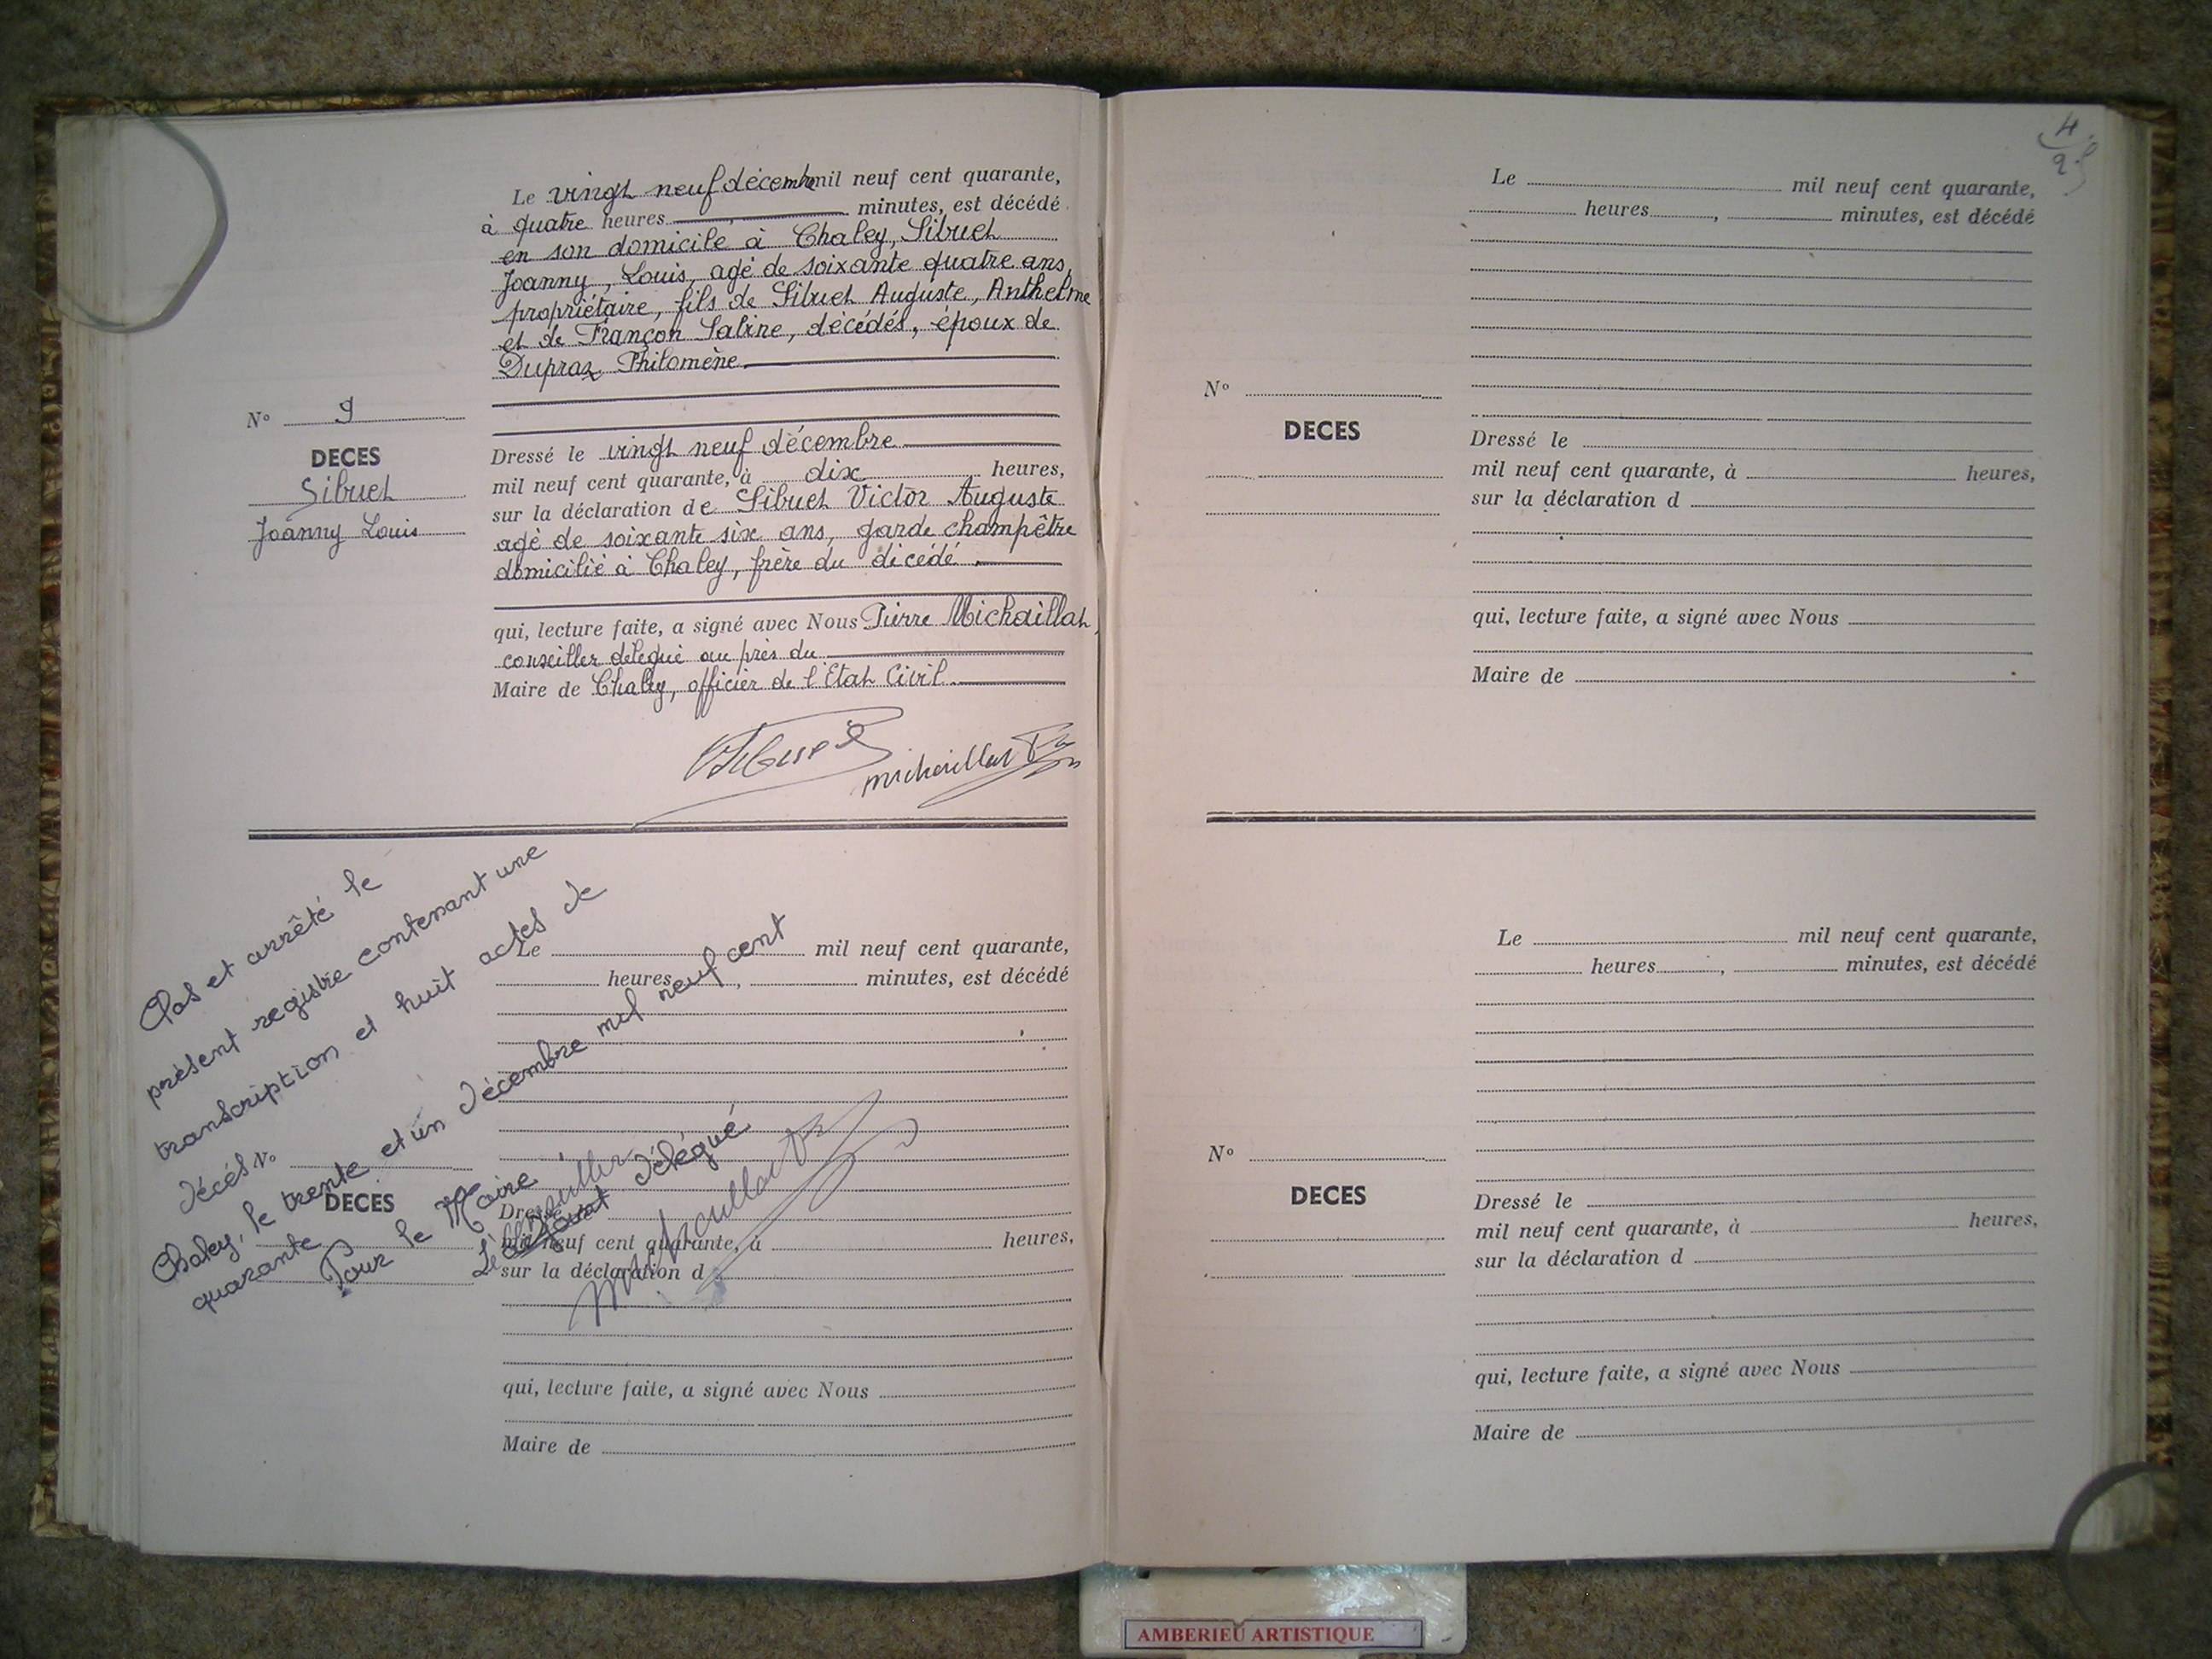 Le vingt neuf décembre mil neuf cent quarante,
à quatre heures , minutes, est décédé
en son domicile à Chaley, Sibuet
Joanny, Louis, agé de soixante quatre ans,
propriétaire, fils de Sibuet Auguste, Anthelme
et de Françon Sabine, décédés, époux de
Dupraz Philomène.
N° 9
DECES
Sibuet
Joanny Louis
Dressé le vingt neuf décembre
mil neuf cent quarante, à dix heures,
sur la déclaration de Sibuet Victor Auguste
agé de soixante six ans, garde champêtre
domicilié à Chaley, frère du décédé.
qui, lecture faite, a signé avec Nous Pierre Michaillat,
conseiller délégué au près du
Maire de Chaley, officier de l'Etat Civil.
Michaillat
Clos et arrêté le
présent registre contenant une
transcription et huit actes de
décés
Chaley, le trente et un décembre mil neuf cent
quarante
Pour le Maire
Le conseiller délégué
Le mil neuf cent quarante,
heures , minutes, est décédé
N°
DECES
Dressé le
mil neuf cent quarante, à heures,
sur la déclaration d
qui, lecture faite, a signé avec Nous
Maire de
Le mil neuf cent quarante,
heures , minutes, est décédé
N°
DECES
Dressé le
mil neuf cent quarante, à heures,
sur la déclaration d
qui, lecture faite, a signé avec Nous
Maire de
Le mil neuf cent quarante,
heures , minutes, est décédé
N°
DECES
Dressé le
mil neuf cent quarante, à heures,
sur la déclaration d
qui, lecture faite, a signé avec Nous
Maire de
AMBERIEU ARTISTIQUE